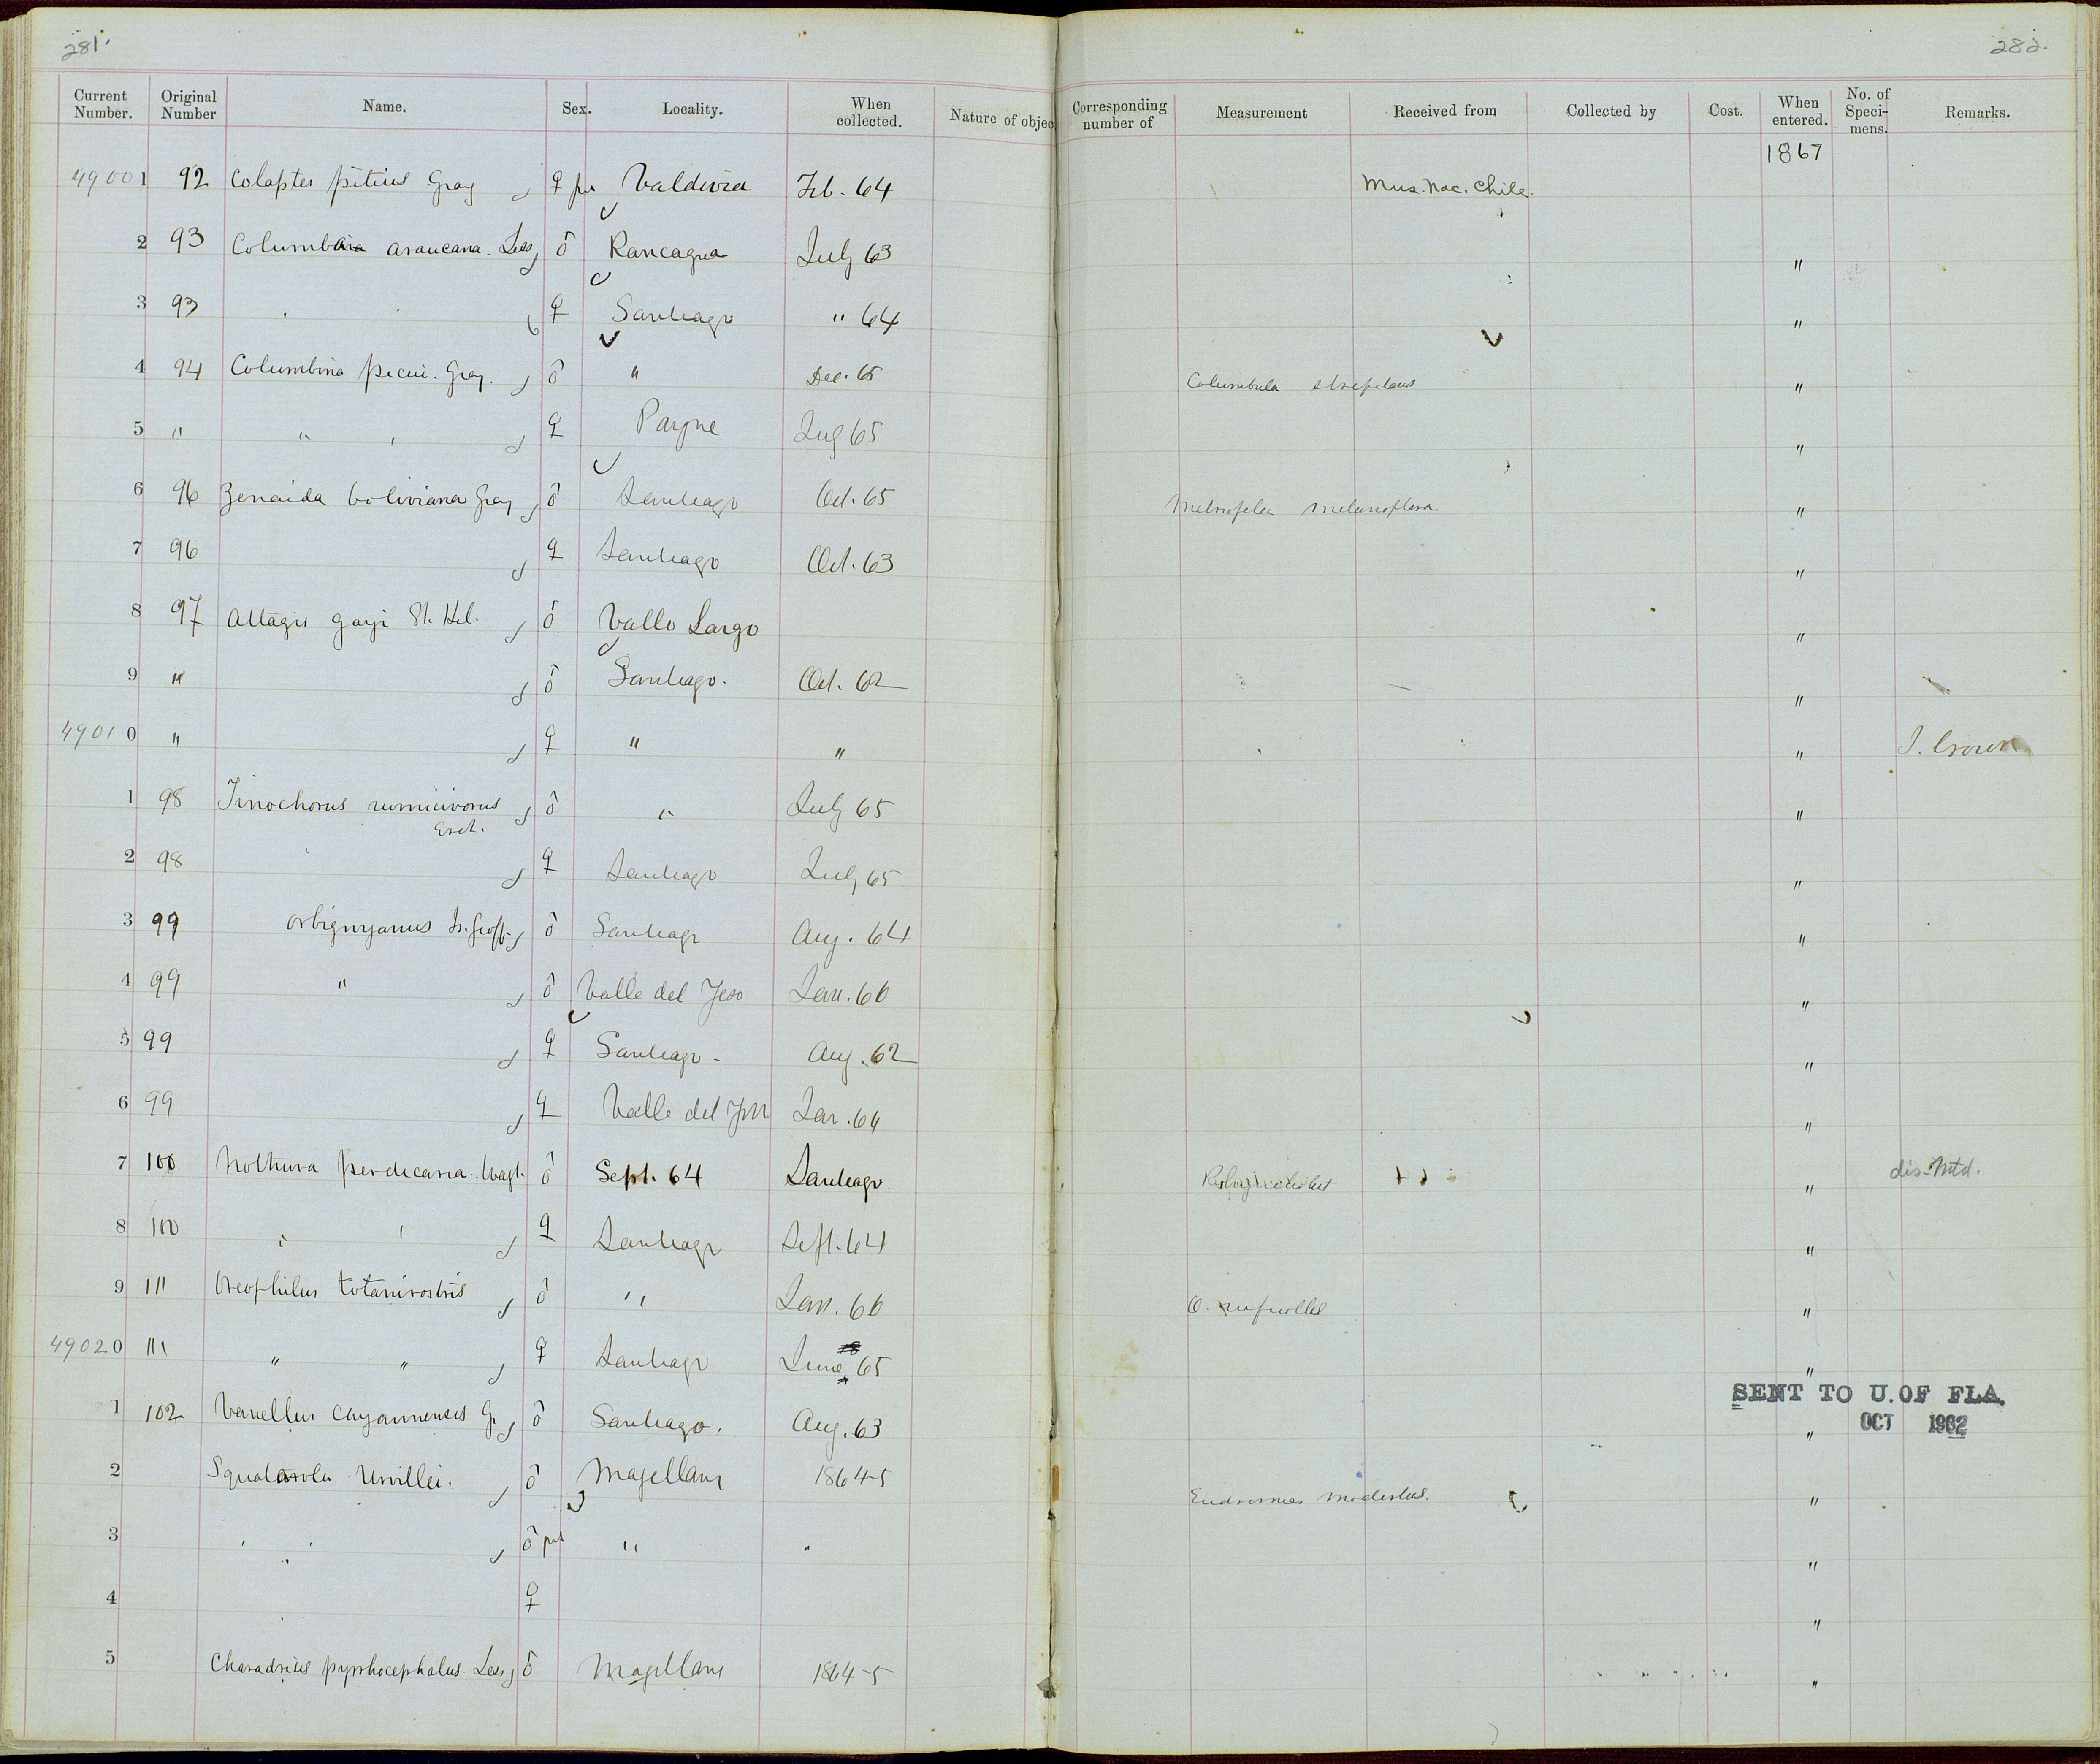 281. 282.
Current Number. Original Number Name. Sex. Locality. When collected. Nature of objec Corresponding number of Measurement Received from Collected by Cost. When entered. No. of Speci- mens. Remarks.
1867
49001 92 Colaptes pitius Gray ♀ Valdivia Feb. 64 Mus. Nac. Chile.
2 93 Columba araucana. Less ♂ Rancagua July 63 "
3 93 ♀ Santiago " 64 "
4 94 Columbina picui. Gray. ♂ " Dec. 65 Columbula strepitans "
5 " " ♀ Payne 65 "
6 96 Zenaida boliviana Gray ♂ Santiago Oct. 65 Metriopelia melanoptera "
7 96 ♀ Santiago Oct. 63 "
8 97 Attagis gayi St. Hil. ♂ Valle Largo "
9 " ♂ Santiago. Oct. 62 "
49010 " ♀ " " "
1 98 Tinochorus rumicivorus ♂ " July 65 "
Esch.
2 98 ♀ Santiago July 65 "
3 99 Orbignyanus Is. Geoff. ♂ Santiago Aug. 64 "
4 99 " ♂ Valle del Yeso Jan. 66 "
5 99 ♀ Santiago - Aug. 62 "
6 99 ♀ Valle del Jan. "
7 100 Nothura perdicaria. Wagl. ♂ Sept. 64 Santiago " dis-Mtd.
8 100 ♀ Santiago Sept. 64 "
9 111 Oreophilus totanirostris ♂ " Jan. 66 O. ruficollis "
49020 111 " " ♀ Santiago June 65 "
SENT TO U. OF FLA.
1 102 Vanellus cayannensis G. ♂ Santiago. Aug. 63 "
OCT 1962
2 Squatarola Urvillei. ♂ Magellans 1864-5 Eudromias modestus. "
3 ♂ " " "
4 ♀ "
5 Charadrius pyrrhocephalus Less ♂ Magellans 1864-5 "